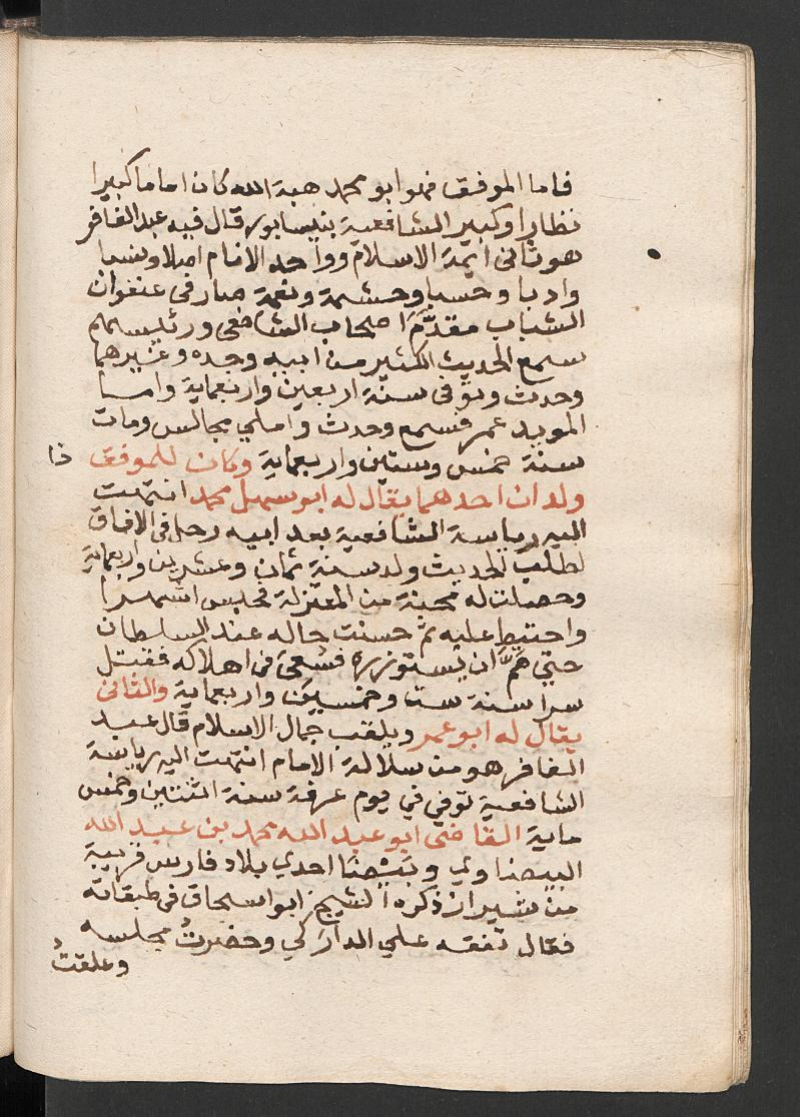 فاما الموفق فهو ابو محمد هبة الله كان اماما كبيرا
نظارا وكبير الشافعية بنيسابور قال فيه عبد الغافر
هو ثانى ايمة الاسلام وواحد الانام اصلا ونسبا
وادبا وحسبا وحشمة ونعمة صار فى عنفوان
الشباب مقدَّم اصحاب الشافعى ورئيسهم
سمع الحديث الكثير من ابيه وجده وغيرهما
وحدث وتوفى سنة اربعين واربعماية واما
المويد عمر فسمع وحدث واملي مجالس ومات
سنة خمس وستين واربعماية وكان للموفق
ولدان احدهما يقال له ابو سهل محمد انتهت
اليه رياسة الشافعية بعد ابيه رحل فى الافاق
لطلب الحديث ولد سنة ثمان وعشرين واربعماية
وحصلت له محنة من المعتزلة فحبس اشهرا
واحتيط عليه ثم حسنت حاله عند السلطان
حتي هَمَّ ان يستوزره فسُعىَ فى اهلاكه فقتل
سرا سنة ست وخمسين واربعماية والثانى
يقال له ابو عمر ويلقب جمال الاسلام قال عبد
الغافر هو من سلالة الامام انتهت اليه رياسة
الشافعية توفي في يوم عرفة سنة اثنتين وخمس
ماية القاضى ابو عبد الله محمد بن عبد الله
البيضاوي وبَيْضا احدي بلاد فارس قريبة
من شيراز ذكره الشيخ ابو اسحاق فى طبقاته
فقال تفقه علي الداركي وحضرتُ مجلسه
وعلقتُ